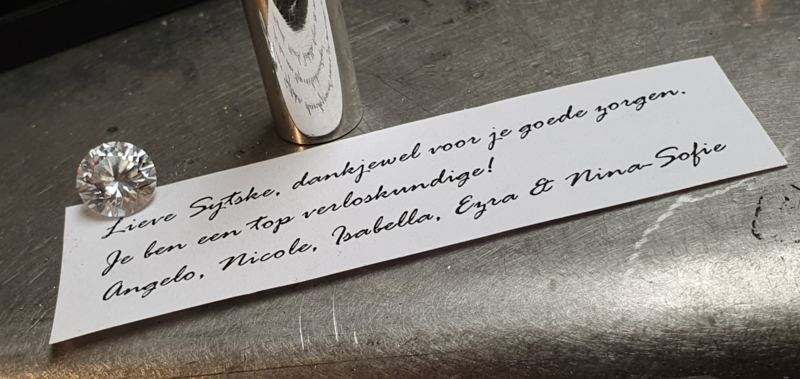 Lieve Sytske, dankjewel voor je goede zorgen.
Je ben een top verloskundige!
Angelo, Nicole, Isabella, Ezra & Nina-Sofie